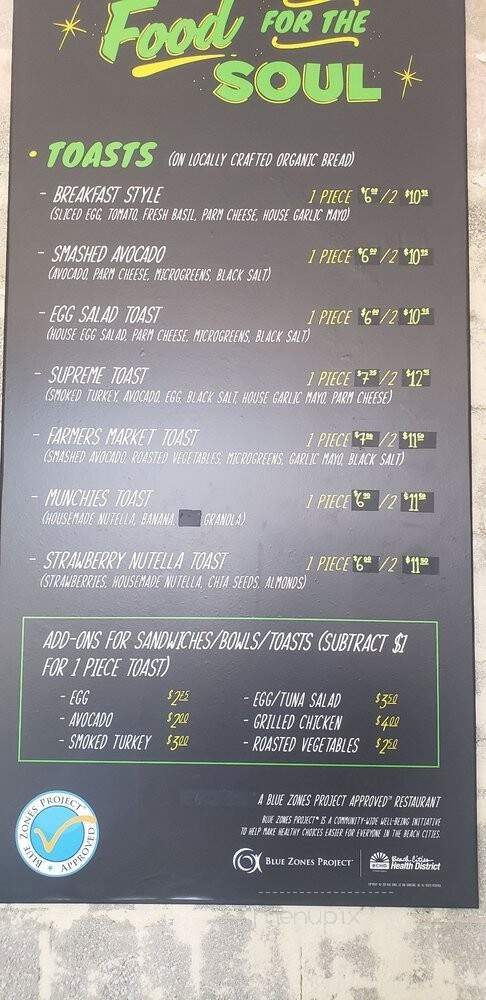 Food FOR THE
SOUL
• TOASTS (ON LOCALLY CRAFTED ORGANIC BREAD)
- BREAKFAST STYLE 1 PIECE $6 /2 $10
(SLICED EGG, TOMATO, FRESH BASIL, PARM CHEESE, HOUSE GARLIC MAYO)
- SMASHED AVOCADO 1 PIECE $6 /2 $10
(AVOCADO, PARM CHEESE, MICROGREENS, BLACK SALT)
- EGG SALAD TOAST 1 PIECE $6 /2 $10
(HOUSE EGG SALAD, PARM CHEESE, MICROGREENS, BLACK SALT)
- SUPREME TOAST 1 PIECE $7 /2 $12
(SMOKED TURKEY, AVOCADO, EGG, BLACK SALT, HOUSE GARLIC MAYO, PARM CHEESE)
- FARMERS MARKET TOAST 1 PIECE $7 /2 $11
(SMASHED AVOCADO, ROASTED VEGETABLES, MICROGREENS, GARLIC MAYO, BLACK SALT)
- MUNCHIES TOAST 1 PIECE $6 /2 $11
(HOUSEMADE NUTELLA, BANANA, GRANOLA)
- STRAWBERRY NUTELLA TOAST 1 PIECE $6 /2 $11
(STRAWBERRIES, HOUSEMADE NUTELLA, CHIA SEEDS, ALMONDS)
ADD-ONS FOR SANDWICHES/BOWLS/TOASTS (SUBTRACT $1
FOR 1 PIECE TOAST)
- EGG $2.25 - EGG/TUNA SALAD $3.50
- AVOCADO $2.00 - GRILLED CHICKEN $4.00
- SMOKED TURKEY $3.00 - ROASTED VEGETABLES $2.50
BLUE ZONES PROJECT®
APPROVED
A BLUE ZONES PROJECT APPROVED™ RESTAURANT
BLUE ZONES PROJECT® IS A COMMUNITY-WIDE WELL-BEING INITIATIVE
TO HELP MAKE HEALTHY CHOICES EASIER FOR EVERYONE IN THE BEACH CITIES.
BLUE ZONES PROJECT® Beach Cities
Health District
menupix